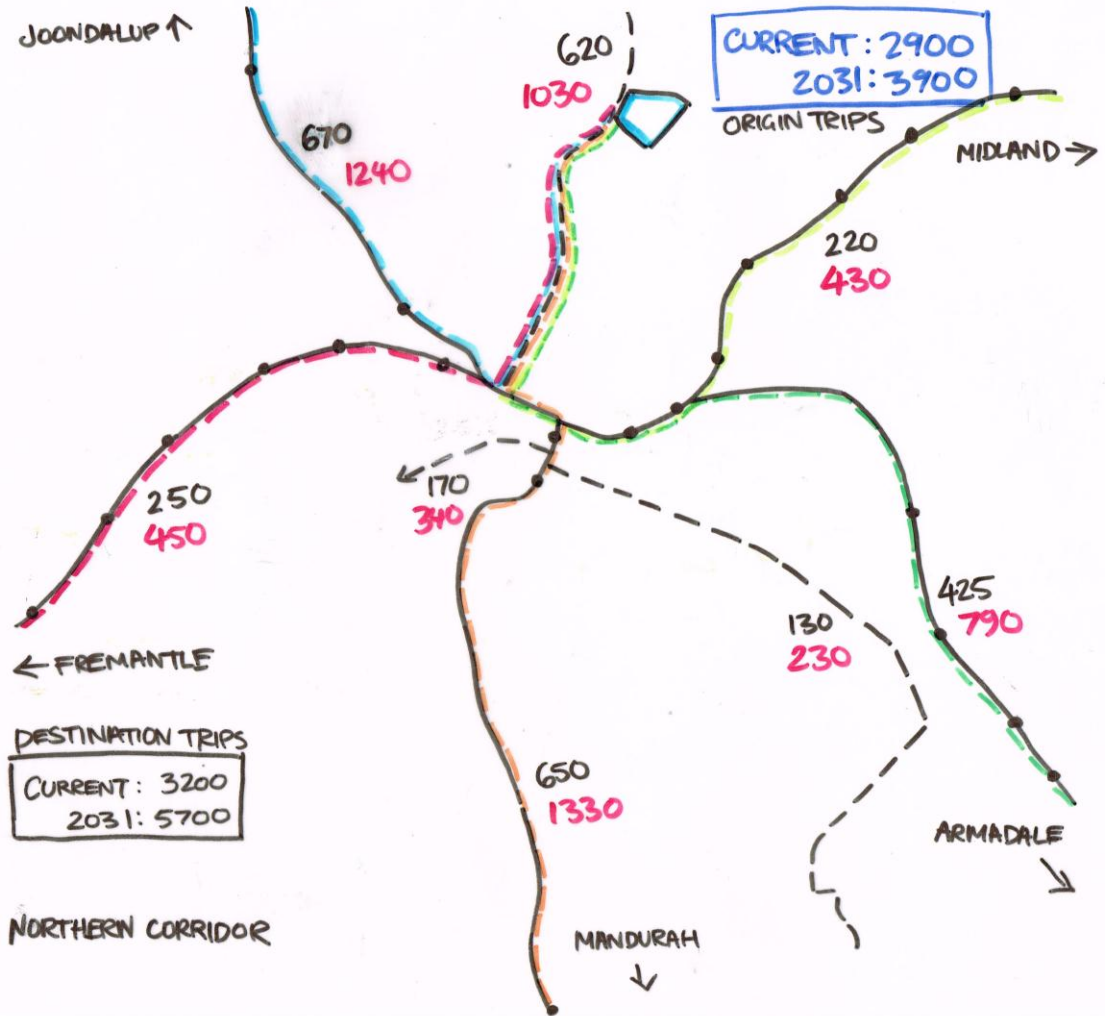 JOONDALUP ↑
620
1030
CURRENT: 2900
2031: 3900
ORIGIN TRIPS
MIDLAND →
670
1240
220
430
250
450
170
340
425
790
130
230
← FREMANTLE
DESTINATION TRIPS
CURRENT: 3200
2031: 5700
650
1330
ARMADALE
NORTHERN CORRIDOR
MANDURAH